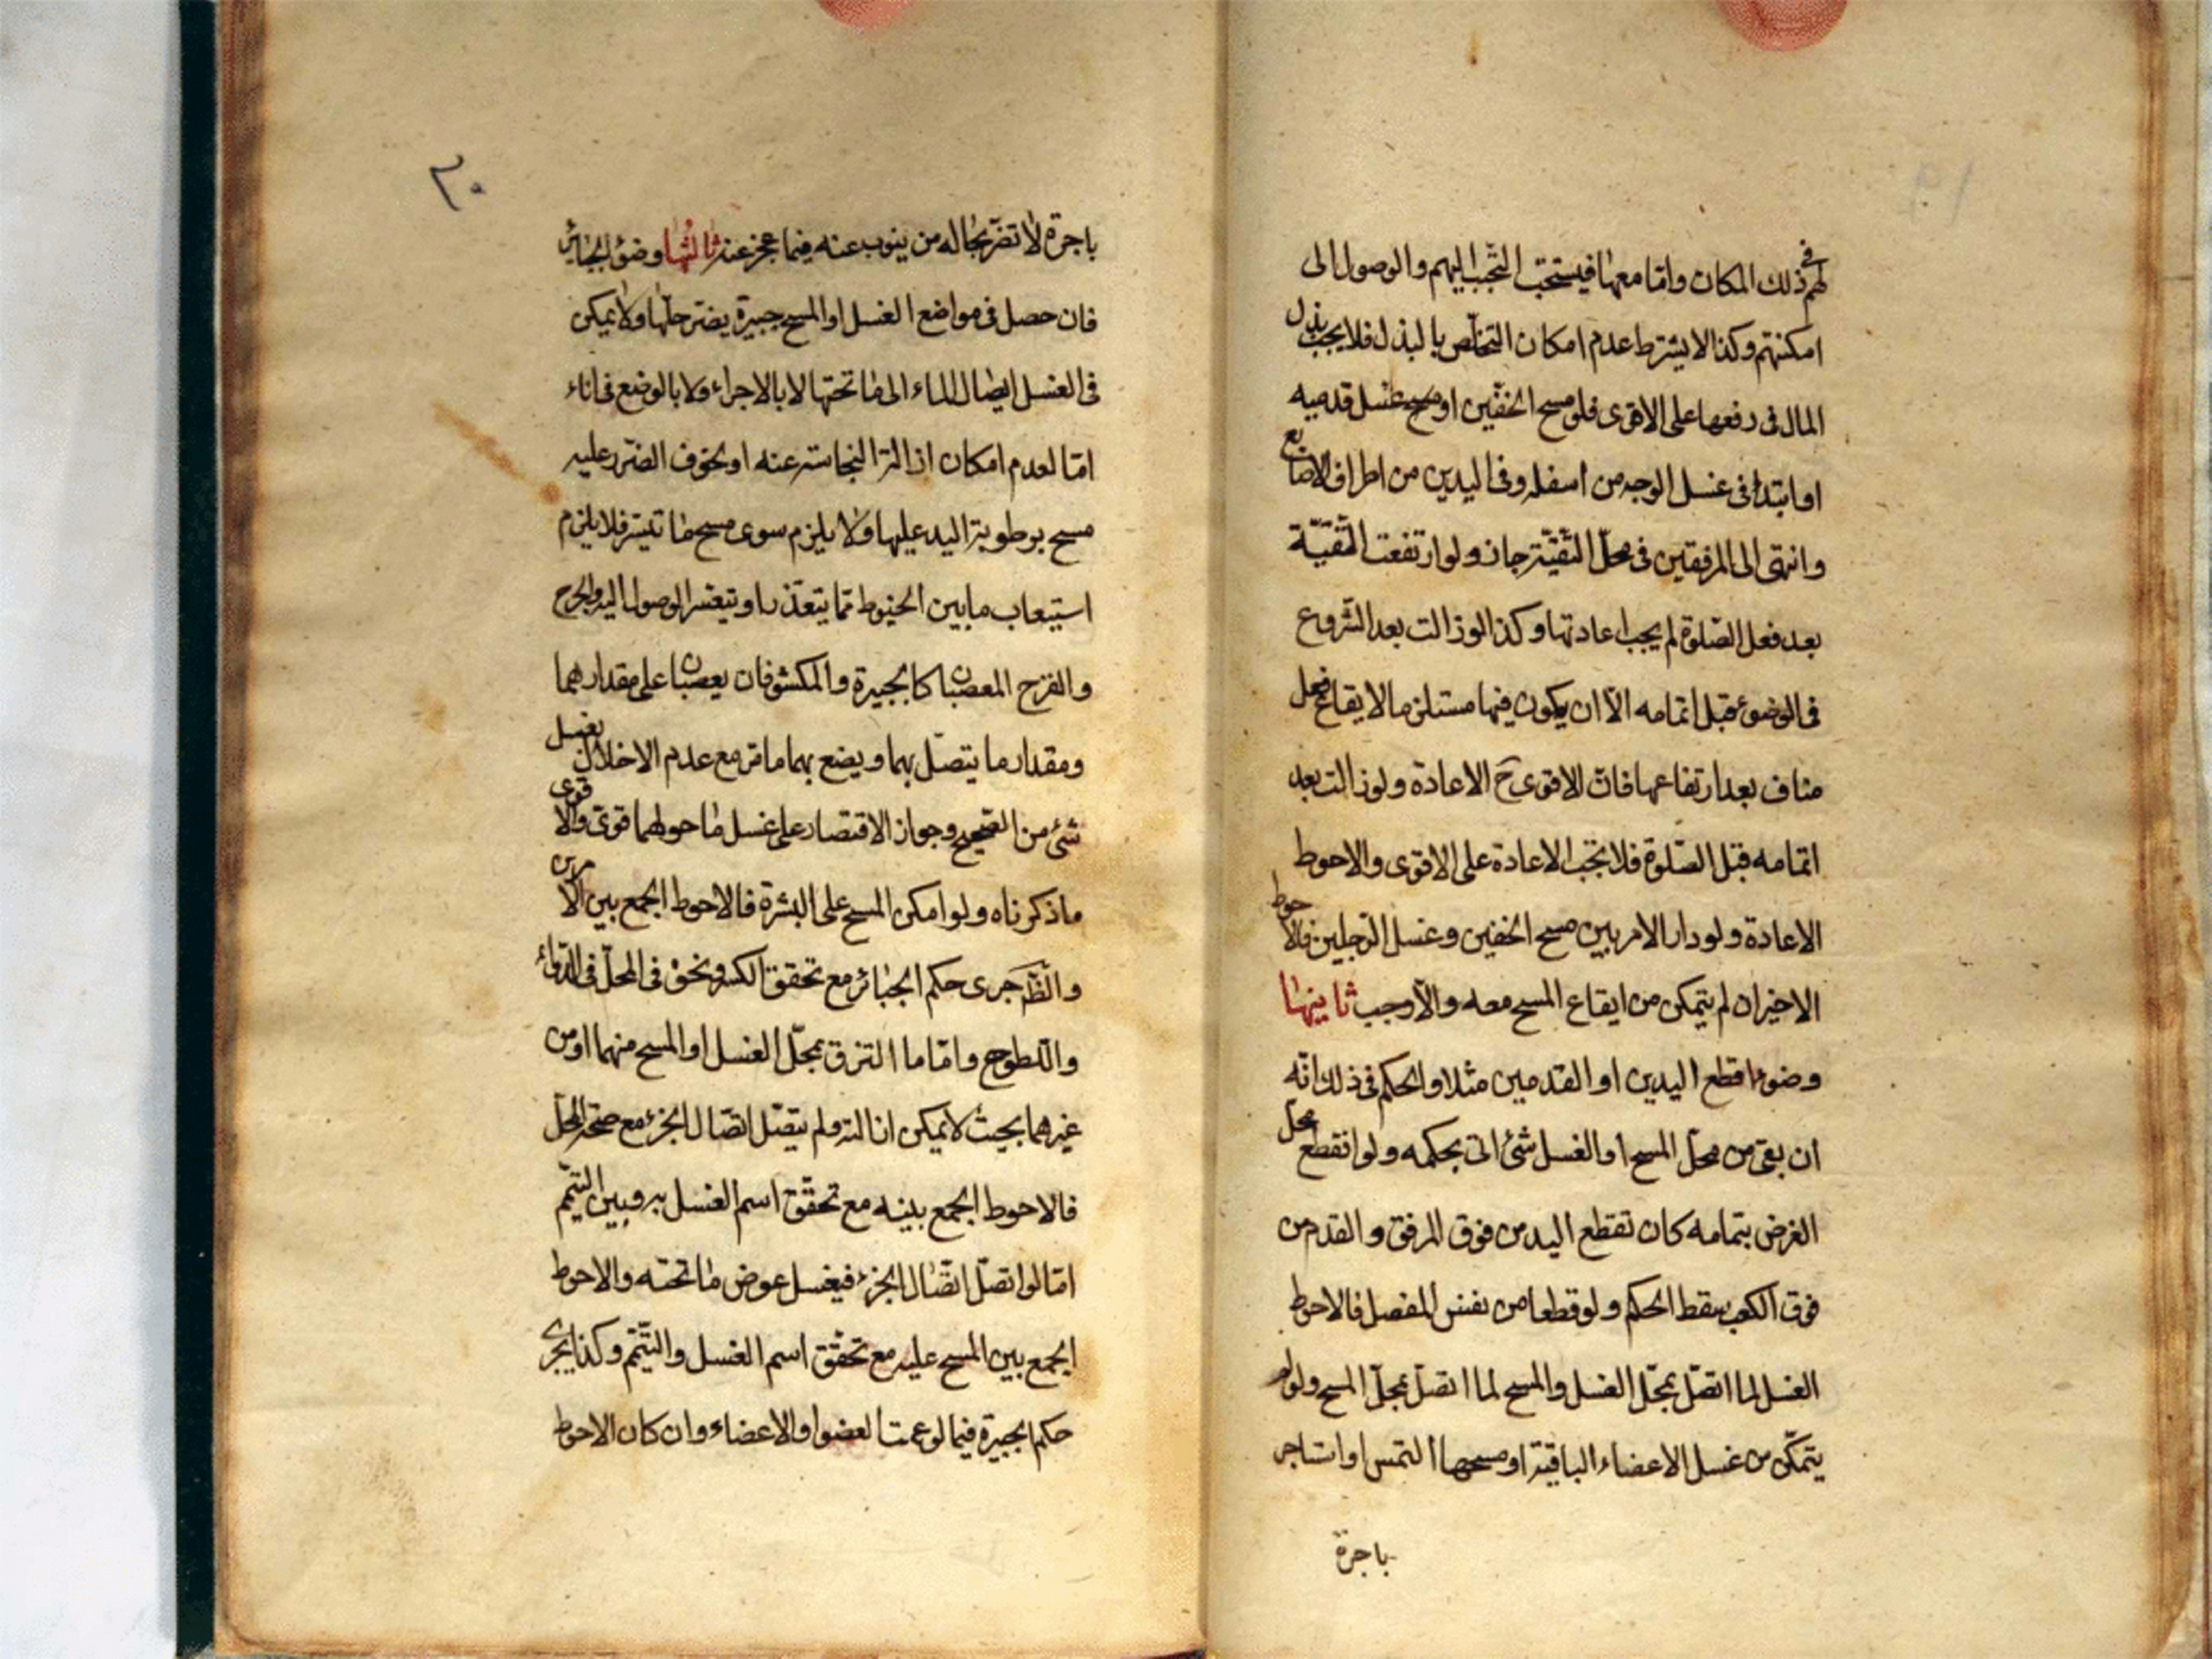 لهم في ذلك المكان واما معها فيستحب التحبب اليهم والوصول الى
امكنتهم وكذا لا يشترط عدم امكان التخلص بالبذل فلا يجب بذل
المال في رفعها على الاقوى فلو مسح الخفين او غسل قدميه
او ابتدا في غسل الوجه من اسفله وفي اليدين من اطراف الاصابع
وانتهى الى المرفقين في محل التقيّة جاز ولو ارتفعت التقيّة
بعد فعل الصّلوة لم يجب اعادتها وكذا لو زالت بعد الشروع
في الوضوء قبل اتمامه الا ان يكون فيها مستلزما لايقاع فعل
مناف بعد ارتفاعها فانّ الاقوى ح الاعادة ولو زالت بعد
اتمامه قبل الصّلوة فلا تجب الاعادة على الاقوى والاحوط
الاعادة ولو دار الامر بين مسح الخفين وغسل الرجلين فالاحوط
الاخير ان لم يتمكن من ايقاع المسح معه والّا وجب ثانيها
وضوء اقطع اليدين او القدمين مثلا والحكم في ذلك انّه
ان بقى من محلّ المسح او الغسل شئ اتى بحكمه ولو انقطع محل
الفرض بتمامه كان تقطع اليد من فوق المرفق والقدم من
فوق الكعب سقط الحكم ولو قطعا من نفس المفصل فالاحوط
الغسل لما اتصل بمحلّ الغسل والمسح لما اتصل بمحلّ المسح ولو لم
يتمكّن من غسل الاعضاء الباقية او مسحها التمس او استاجر
باجرة
٢٠
باجرة لا تضرّ بحاله من ينوب عنه فيما عجز عنه ثالثها وضوء الجبائر
فان حصل في مواضع الغسل او المسح جبيرة يضرّ حلّها ولا يمكن
في الغسل ايصال الماء الى ما تحتها لا بالاجراء ولا بالوضع في اناء
امّا لعدم امكان ازالة النجاسة عنه او لخوف الضرر عليه
مسح برطوبة اليد عليها ولا يلزم سوى مسح ما تيسّر فلا يلزم
استيعاب ما بين الخيوط ممّا يتعذّر او يتعسّر الوصول اليه والجرح
والقرح المعصبان كالجبيرة والمكشوفان يعصبان على مقدارهما
ومقدار ما يتصل بهما ويضع بهما ما مرّ مع عدم الاخلال بغسل
شئ من الصّحيح وجواز الاقتصار على غسل ما حولهما قوىّ والاقوى
ما ذكرناه ولو امكن المسح على البشرة فالاحوط الجمع بين الامرين
والظّ جرى حكم الجبائر مع تحقق الكسر ونحوه في المحلّ في الدّواء
واللّطوح وامّا ما التزق بمحلّ الغسل او المسح منهما او من
غيرهما بحيث لا يمكن ازالته ولم يتصل اتصال الجزء مع صحّة المحلّ
فالاحوط الجمع بينه مع تحقّق اسم الغسل به وبين التيمّم
امّا لو اتصل اتصال الجزء فيغسل عوض ما تحته والاحوط
الجمع بين المسح عليه مع تحقّق اسم الغسل والتيّمم وكذا يجرى
حكم الجبيرة فيما لو عمت العضو او الاعضاء وان كان الاحوط